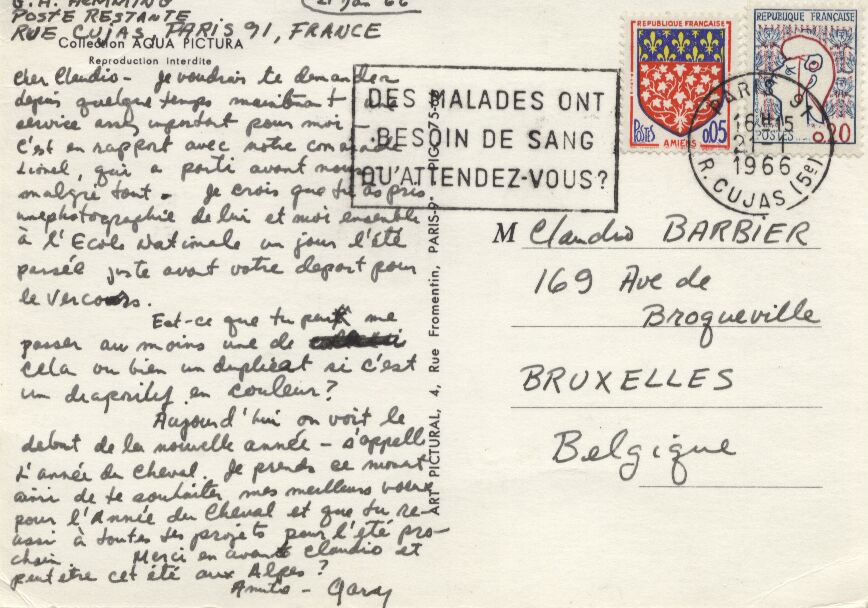 G. H. HEMMING
21 Jan 66
POSTE RESTANTE
RUE CUJAS, PARIS 91, FRANCE
Collection AQUA PICTURA
Reproduction Interdite
Cher Claudio - je voudrais te demander
depuis quelque temps maintenant
service assez important pour moi -
C'est en rapport avec notre
Lionel, qui a parti avant nous
malgré tout. Je crois que tu as pris
une photographie de lui et moi ensemble
à l'Ecole Nationale un jour l'été
passée juste avant votre depart pour
le Vercors.
Est-ce que tu peux me
passer au moins une de
cela ou bien un duplicat si c'est
un diapositif en couleur?
Aujourd'hui on voit le
debut de la nouvelle année - s'appelle
L'année du Cheval. Je prends ce moment
ainsi de te souhaiter mes meilleurs voeux
pour l'Année du Cheval et que tu re-
ussi à toutes tes projets pour l'été pro-
chain. Merci en avant Claudio et
peut être cet été aux Alpes?
Amitié - Gary
ART PICTURAL, 4, Rue Fromentin, PARIS-9e PIG. 75-
DES MALADES ONT
BESOIN DE SANG
QU'ATTENDEZ-VOUS?
REPUBLIQUE FRANÇAISE
POSTES
0,05
AMIENS
REPUBLIQUE FRANÇAISE
POSTES
0,20
PARIS 91
16H15
21-1
1966
R. CUJAS (5e)
M Claudio BARBIER
169 Ave de
Broqueville
BRUXELLES
Belgique